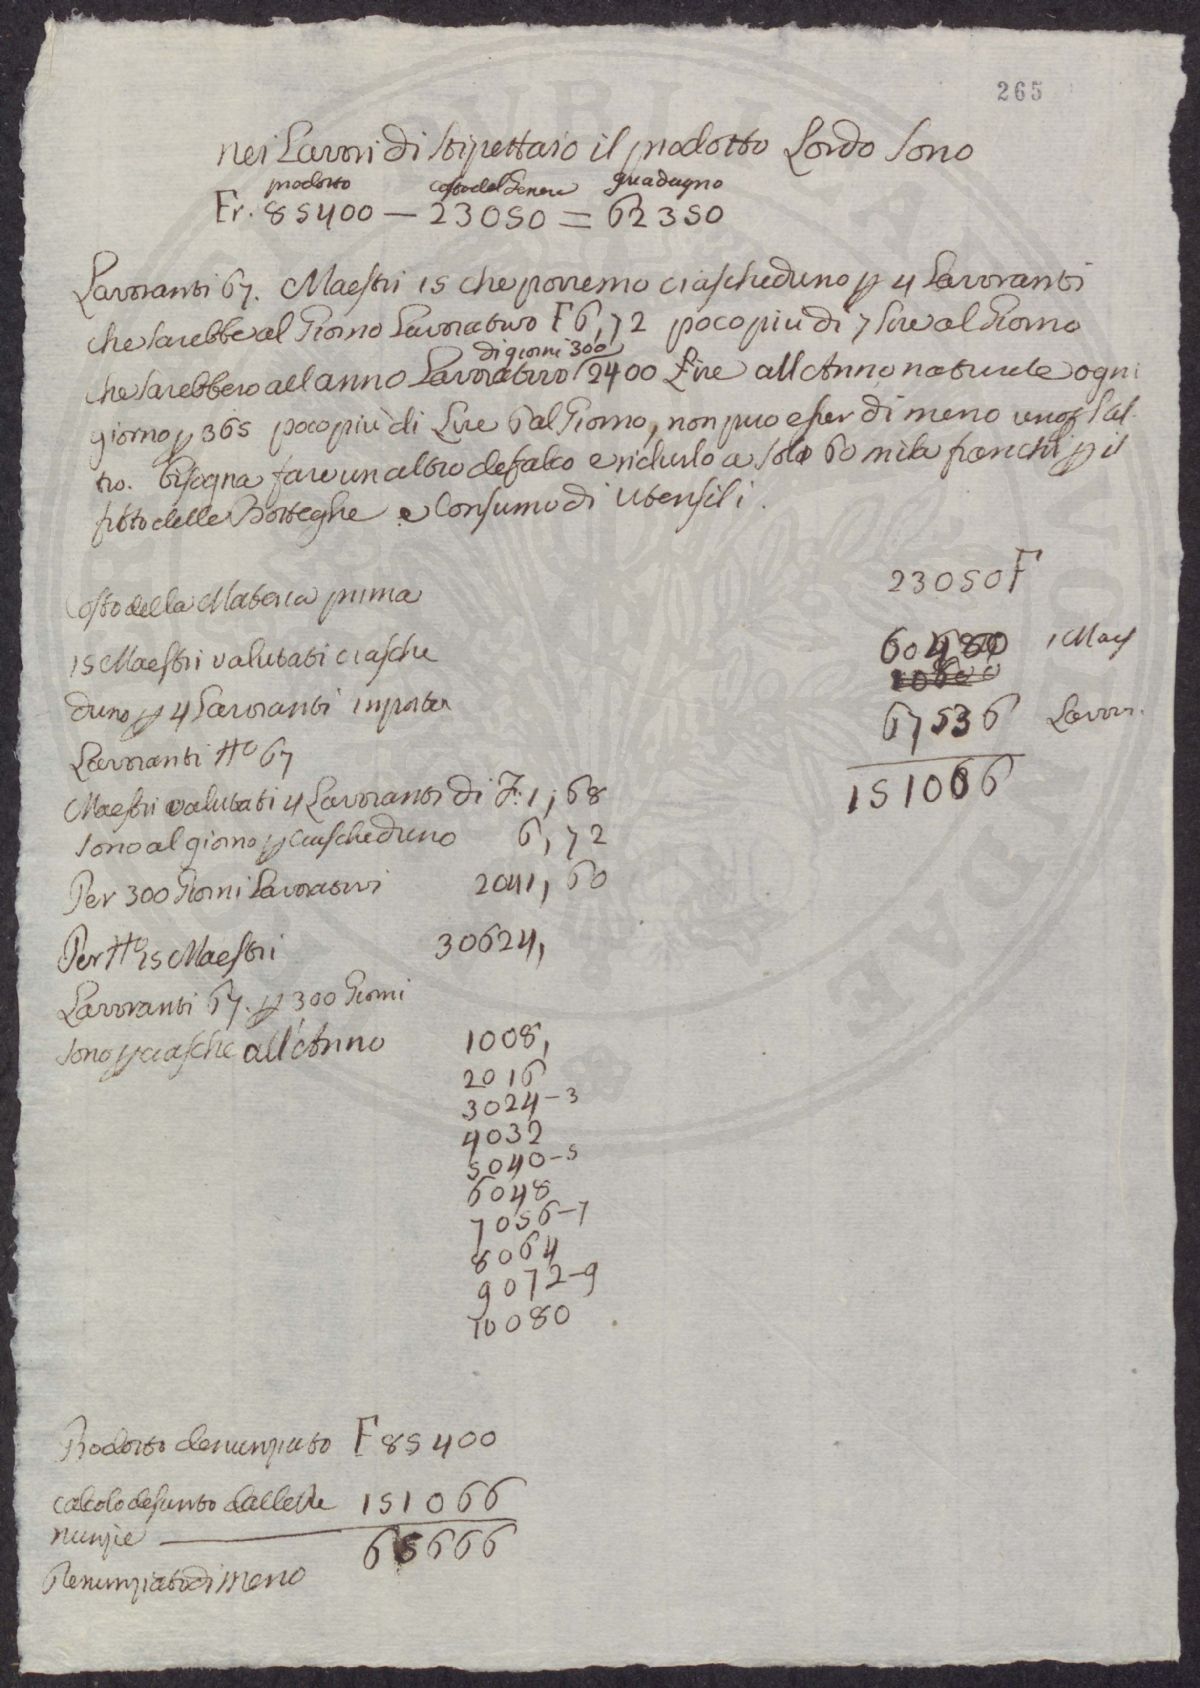 265
nei Lavori di Stipettaio il prodotto Lordo sono
prodotto costo del Genere guadagno
Fr. 85400 — 23050 = 62350
Lavoranti 67. Maestri 15 che porremo ciascheduno p 4 Lavoranti
che sarebbe al Giorno Lavorativo F 6,72 poco piu di 7 lire al Giorno
di giorni 300
che sarebbero all anno Lavorativo 2400 Lire all Anno naturale ogni
giorno p 365 poco più di Lire 6 al Giorno, non puo esser di meno uno p l'al-
tro. bisogna fare un altro defalco e ridurlo a solo 60 mila franchi p il
fitto delle Botteghe e Consumo di Utensili.
Costo della Materia prima 23050 F
15 Maestri valutati ciasche 60480 Maes
duno p 4 Lavoranti importa 67536 Lavor.
Lavoranti N.o 67
151066
Maestri valutati 4 Lavoranti di F. 1,68
sono al giorno p ciascheduno 6,72
Per 300 Giorni Lavorativi 2041,60
Per N.o 15 Maestri 30624,
Lavoranti 67. p 300 Giorni
sono p ciasche all'Anno 1008,
2016
3024-3
4032
5040-5
6048
7056-7
8064
9072-9
10080
Prodotto denunziato F 85400
calcolo desunto dalle de 151066
nunzie
65666
Denunziato di meno